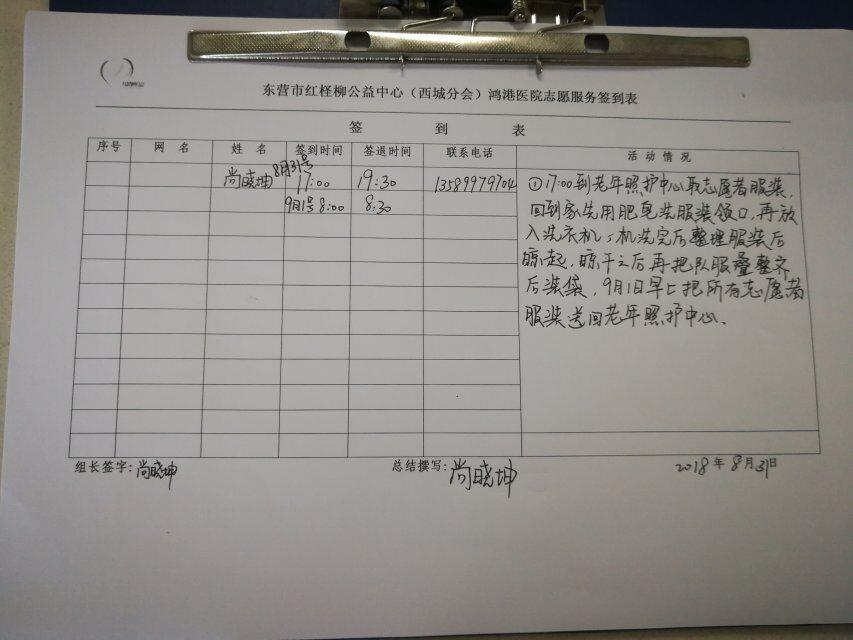 东营市红柽柳公益中心（西城分会）鸿港医院志愿服务签到表
签 到 表
序号 网 名 姓 名 签到时间 签退时间 联系电话 活 动 情 况
尚晓坤 8月31号 17:00 19:30 13589979704
9月1号 8:00 8:30
①17:00到老年照护中心取志愿者服装,
回到家先用肥皂洗服装领口,再放
入洗衣机,机洗完后整理服装后
晾起,晾干之后再把队服叠整齐
后装袋,9月1日早上把所有志愿者
服装送回老年照护中心.
组长签字:尚晓坤 总结撰写:尚晓坤 2018年8月31日